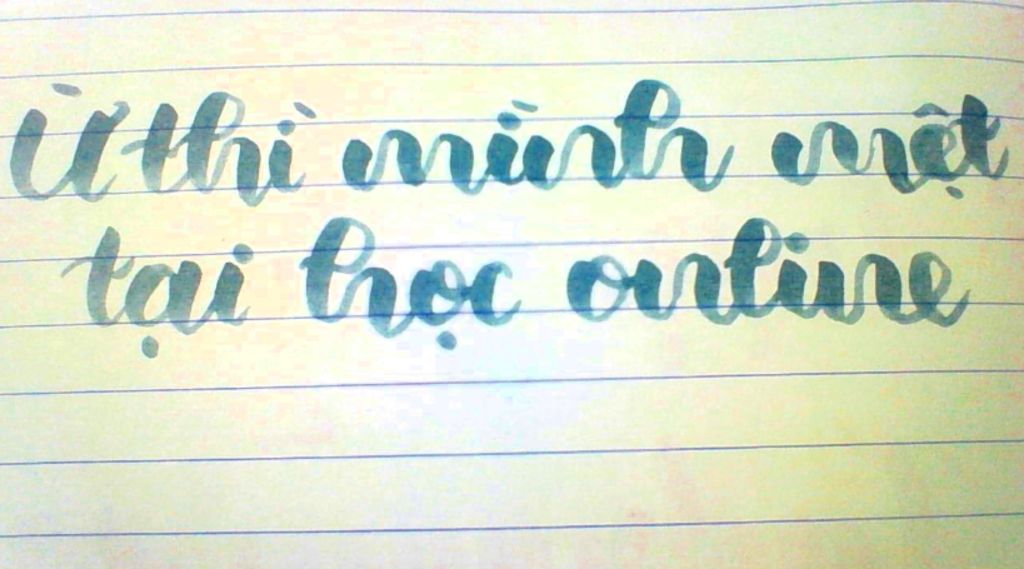 Ừ thì mình mệt
tại học online